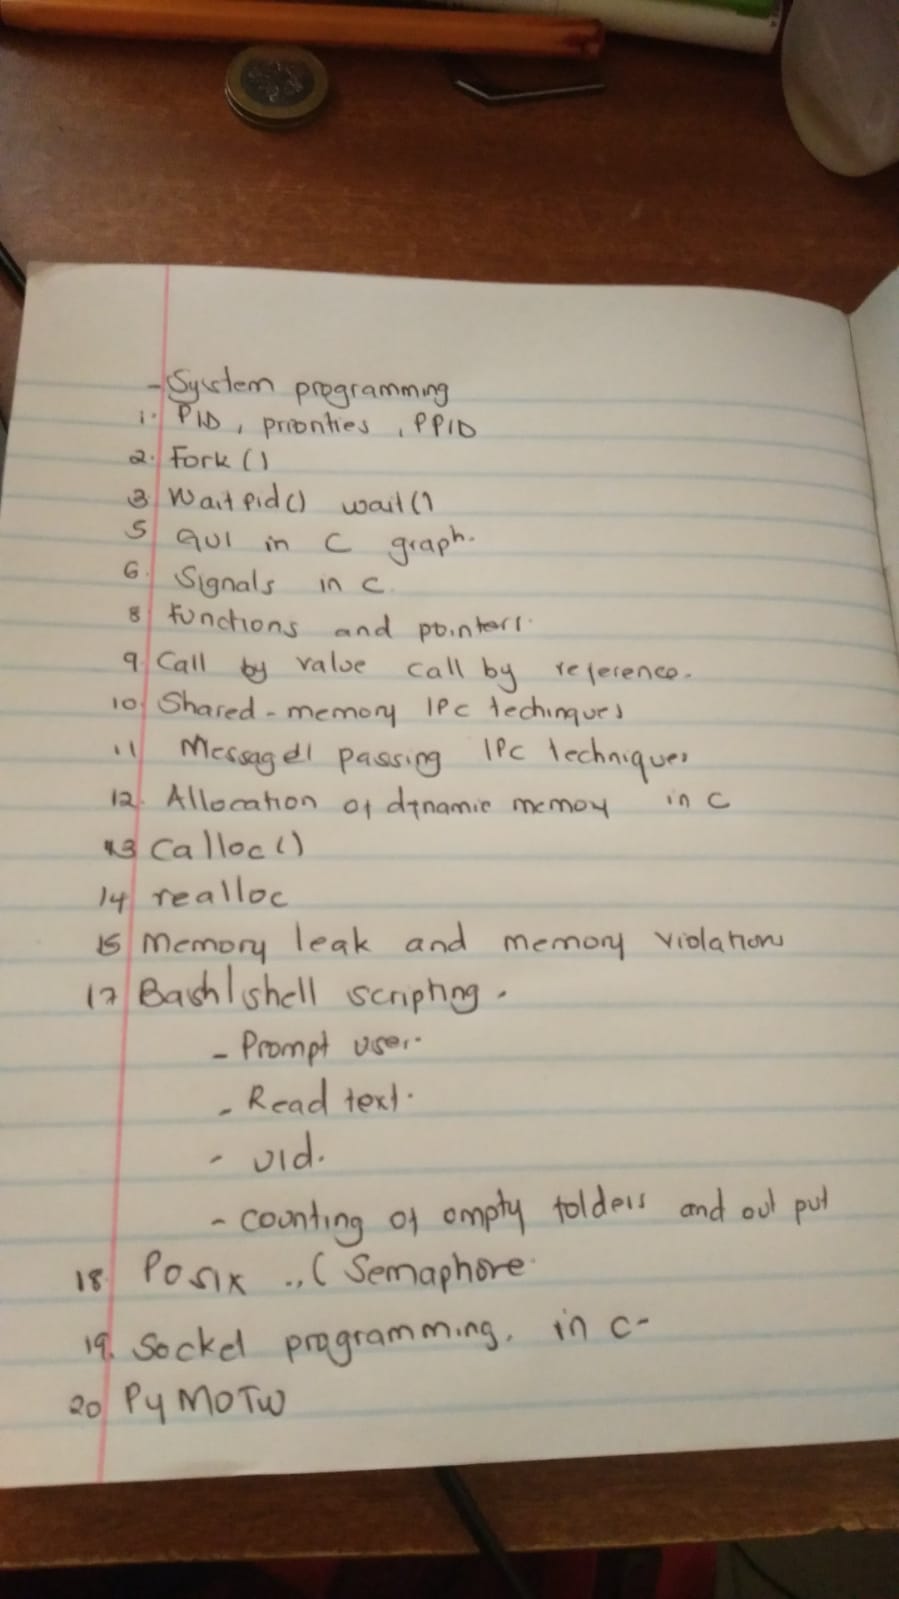 - System programming
1. PID, priorities, PPID
2. Fork ()
3 Wait pid() wait()
5 GUI in C graph.
6. Signals in C.
8 Functions and pointers.
9. Call by value call by reference.
10 Shared-memory IPC techinques
11 Messaged passing IPC techniques
12. Allocation of dynamic memory in C
13 Calloc()
14 realloc
15 Memory leak and memory violation
17 Bash/shell scripting.
- Prompt user.
- Read text.
- uid.
- counting of empty folders and out put
18. Posix ..( Semaphore.
19. Socket programming. in C-
20 PyMOTW